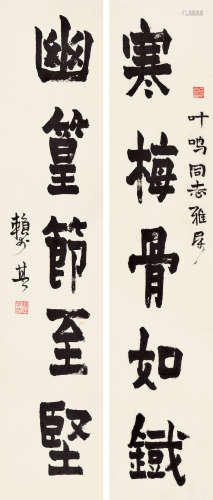 寒梅骨如鐵
叶鸣同志雅属
幽篁節至堅
賴少其